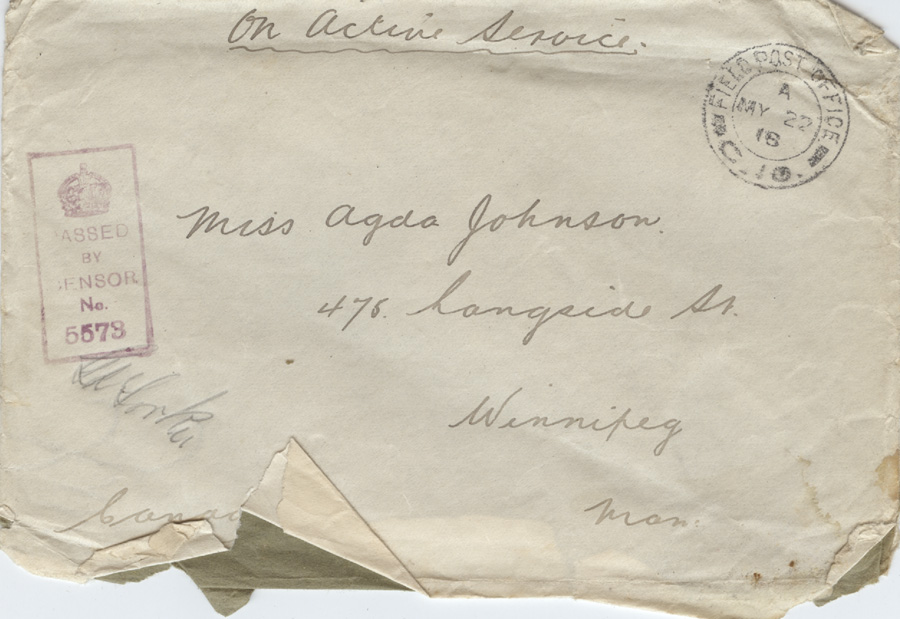 On Active Service.
FIELD POST OFFICE
A
MY 22
16
PASSED
BY
CENSOR
No.
5573
Miss Agda Johnson.
476. Langside St.
Winnipeg
Man.
Canad